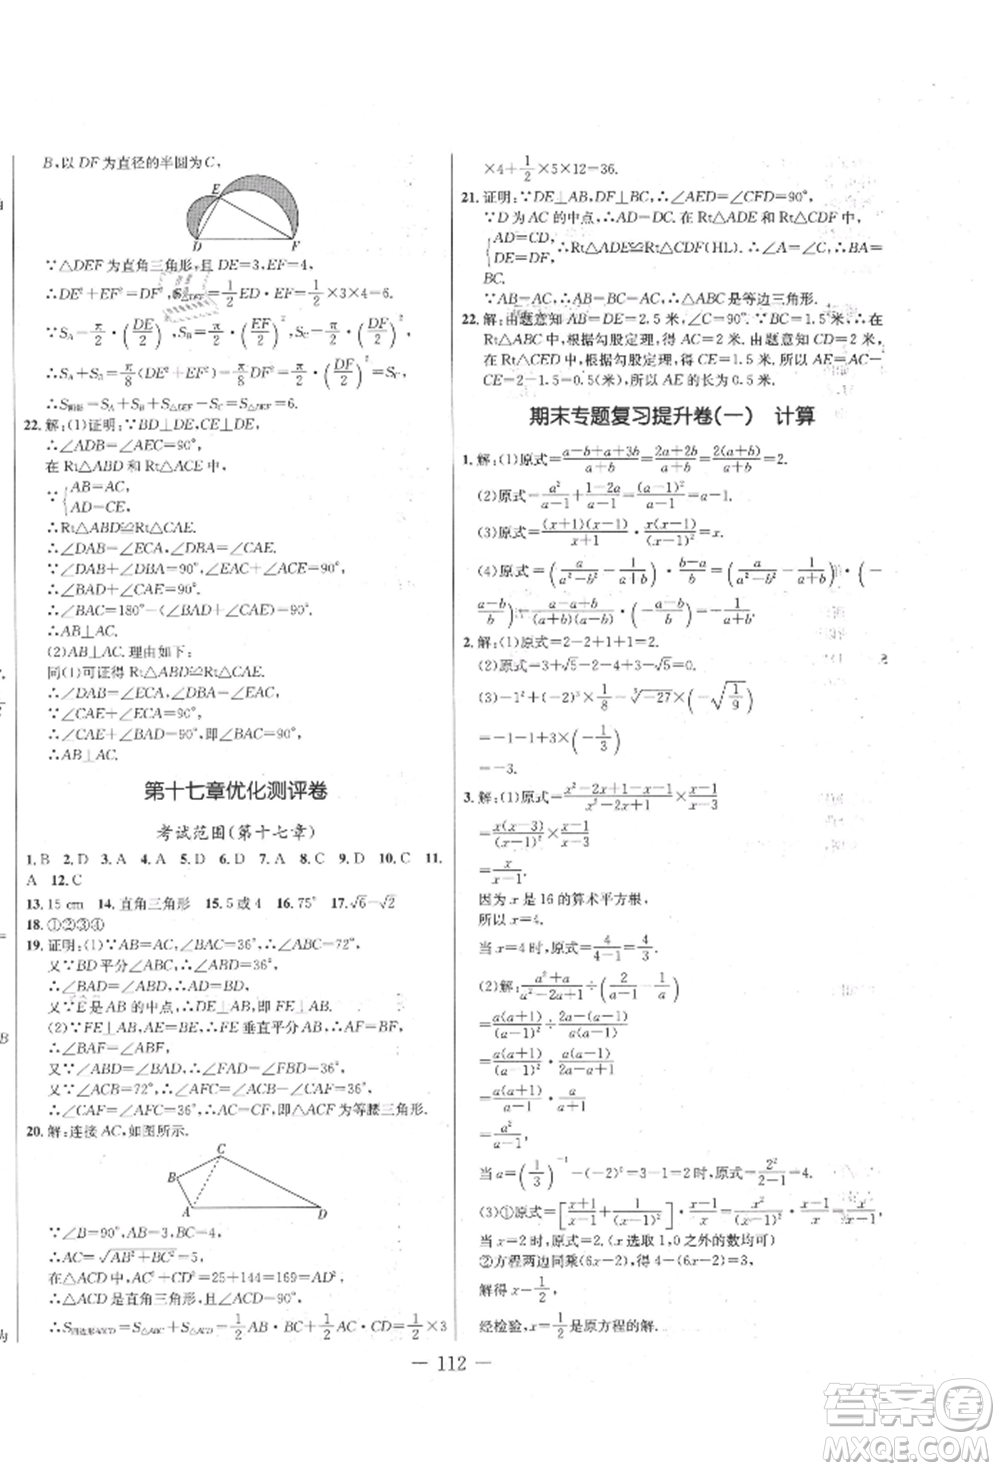 B,以 DF 为直径的半圆为 C,
E
D
F
∵△DEF 为直角三角形,且 DE=3,EF=4,
∴DE²+EF²=DF²,S△DEF=1/2 ED·EF=1/2×3×4=6.
∵S_A=π/2·(DE/2)²,S_B=π/2·(EF/2)²,S_C=π/2·(DF/2)²,
∴S_A+S_B=π/8(DE²+EF²)=π/2·(DF/2)²=S_C.
∴S阴影=S_A+S_B+S△DEF-S_C=S△DEF=6.
22.解:(1)证明:∵BD⊥DE,CE⊥DE,
∴∠ADB=∠AEC=90°,
在 Rt△ABD 和 Rt△ACE 中,
∵{AB=AC,
AD=CE,
∴Rt△ABD≌Rt△CAE.
∴∠DAB=∠ECA,∠DBA=∠CAE.
∵∠DAB+∠DBA=90°,
∴∠DAB+∠CAE=90°.
∴∠BAC=180°-(∠BAD+∠CAE)=90°.
∴AB⊥AC.
(2)AB⊥AC. 理由如下:
同(1)可证得 Rt△ABD≌Rt△CAE.
∴∠DAB=∠ECA,∠DBA=∠CAE.
∵∠CAE+∠ECA=90°,
∴∠CAE+∠BAD=90°,即∠BAC=90°.
∴AB⊥AC.
第十七章优化测评卷
考试范围(第十七章)
1.B 2.D 3.A 4.A 5.D 6.D 7.A 8.C 9.D 10.C 11.
A 12.C
13.15 cm 14.直角三角形 15.5或4 16.75° 17.√6-√2
18.①②③④
19.证明:(1)∵AB=AC,∠BAC=36°,∴∠ABC=72°,
又∵BD平分∠ABC,∴∠ABD=36°,
∴∠BAD=∠ABD,∴AD=BD,
又∵E是AB的中点,∴DE⊥AB,即FE⊥AB.
(2)∵FE⊥AB,AE=BE,∴FE 垂直平分 AB,
∴∠BAF=∠ABF,
又∵∠ABD=∠BAD,∴∠FAD=∠FBD=36°,
又∵∠ACB=72°,∴∠AFC=∠ACB-∠CAF=36°,
∴∠CAF=∠AFC=36°,∴AC=CF,即△ACF为等腰三角形.
20.解:连接 AC,如图所示.
C
B
A
D
∵∠B=90°,AB=3,BC=4,
∴AC=√(AB²+BC²)=5,
在△ACD 中,AC²+CD²=25+144=169=AD²,
∴△ACD是直角三角形,且∠ACD=90°,
∴S四边形ABCD=S△ABC+S△ACD=1/2 AB·BC+1/2 AC·CD=1/2×3
×4+1/2×5×12=36.
21.证明:∵DE⊥AB,DF⊥BC,∴∠AED=∠CFD=90°,
∵D 为 AC 的中点,∴AD=DC. 在 Rt△ADE 和 Rt△CDF 中,
{AD=CD,
DE=DF,
∴Rt△ADE≌Rt△CDF(HL).∴∠A=∠C.∴BA=
BC.
∵AB=AC,∴AB=BC=AC,∴△ABC是等边三角形.
22.解:由题意知AB=DE=2.5米,∠C=90°.∵BC=1.5米,∴在
Rt△ABC 中,根据勾股定理,得 AC=2 米. 由题意知 CD=2 米,
在 Rt△CED 中,根据勾股定理,得 CE=1.5 米. 所以 AE=AC-
CE=2-1.5=0.5(米),所以 AE 的长为 0.5 米.
期末专题复习提升卷(一) 计算
1.解:(1)原式=(a-b+a+3b)/(a+b)=(2a+2b)/(a+b)=2(a+b)/(a+b)=2.
(2)原式=a²/(a-1)+(1-2a)/(a-1)=(a-1)²/(a-1)=a-1.
(3)原式=(x+1)(x-1)/(x+1)·x(x-1)/(x-1)²=x.
(4)原式=(a/(a²-b²)-1/(a+b))÷b/(b-a)=(a/(a²-b²)-1/(a+b))·(-
(a-b)/b)=(a-a+b)/((a+b)(a-b))·(-(a-b)/b)=-1/(a+b).
2.解:(1)原式=2-2+1+1=2.
(2)原式=3+√5-6-2-√5+5=0.
(3)-1²+(-2)³×1/8-∛-27×(-√(1/9))
=-1-1+3×(-1/3)
=-3.
3.解:(1)原式=(x²-2x+1-x-1)/((x-1)²)×(x-1)/(x-3)
=x(x-3)/(x-1)²×(x-1)/(x-3)
=x/(x-1).
因为 x 是 16 的算术平方根,
所以 x=4.
当 x=4 时,原式=4/(4-1)=4/3.
(2)解:(a²+a)/(a²-2a+1)÷(2/(a-1)-1/a)
=a(a+1)/(a-1)²÷(2a-(a-1))/(a(a-1))
=a(a+1)/(a-1)²·a(a-1)/(a+1)
=a²/(a-1),
当 a=(1/3)⁻¹-(-2)⁰=3-1=2 时,原式=2²/(2-1)=4.
当 x=2 时,原式=2.(x 选取 1,0 之外的数均可)
②方程两边同乘(6x-2),得 4-(6x-2)=3,
解得 x=1/2.
经检验,x=1/2是原方程的解.
— 112 —
答案圈
MXQE.COM